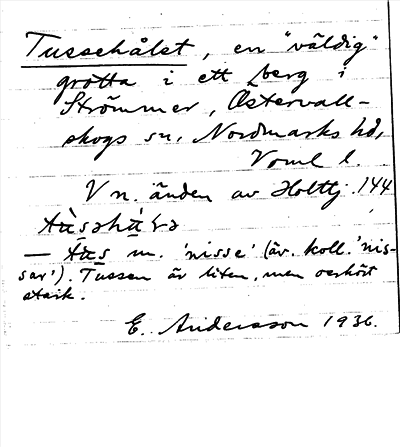 Tussehålet, en "väldig"
grotta i ett berg i
Strömmer, Östervall-
skogs sn, Nordmarks hd,
Vrml l.
V n. änden av Holttj. 144
— tus m. 'nisse' (äv. koll. 'nis-
sar'). Tussen är liten, men oerhört
stark.
E. Andersson 1936.